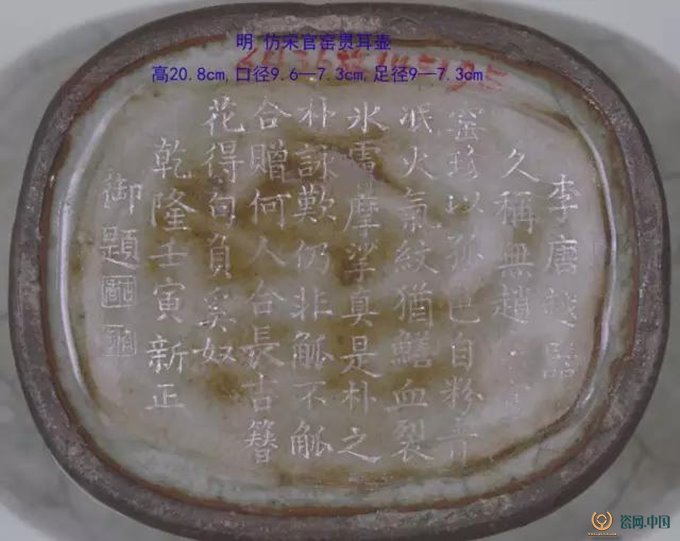 明 仿宋官窑贯耳壶
高20.8cm,口径9.6—7.3cm,足径9—7.3cm
李唐越器
久稱無趙官
窰珍以孤色自粉青
泯火氣紋猶鱔血裂
氷膚摩挲真是朴之
朴詠歎仍非觚不觚
合贈何人合長吉簪
花得句負奚奴
乾隆壬寅新正
御題
瓷网.中国